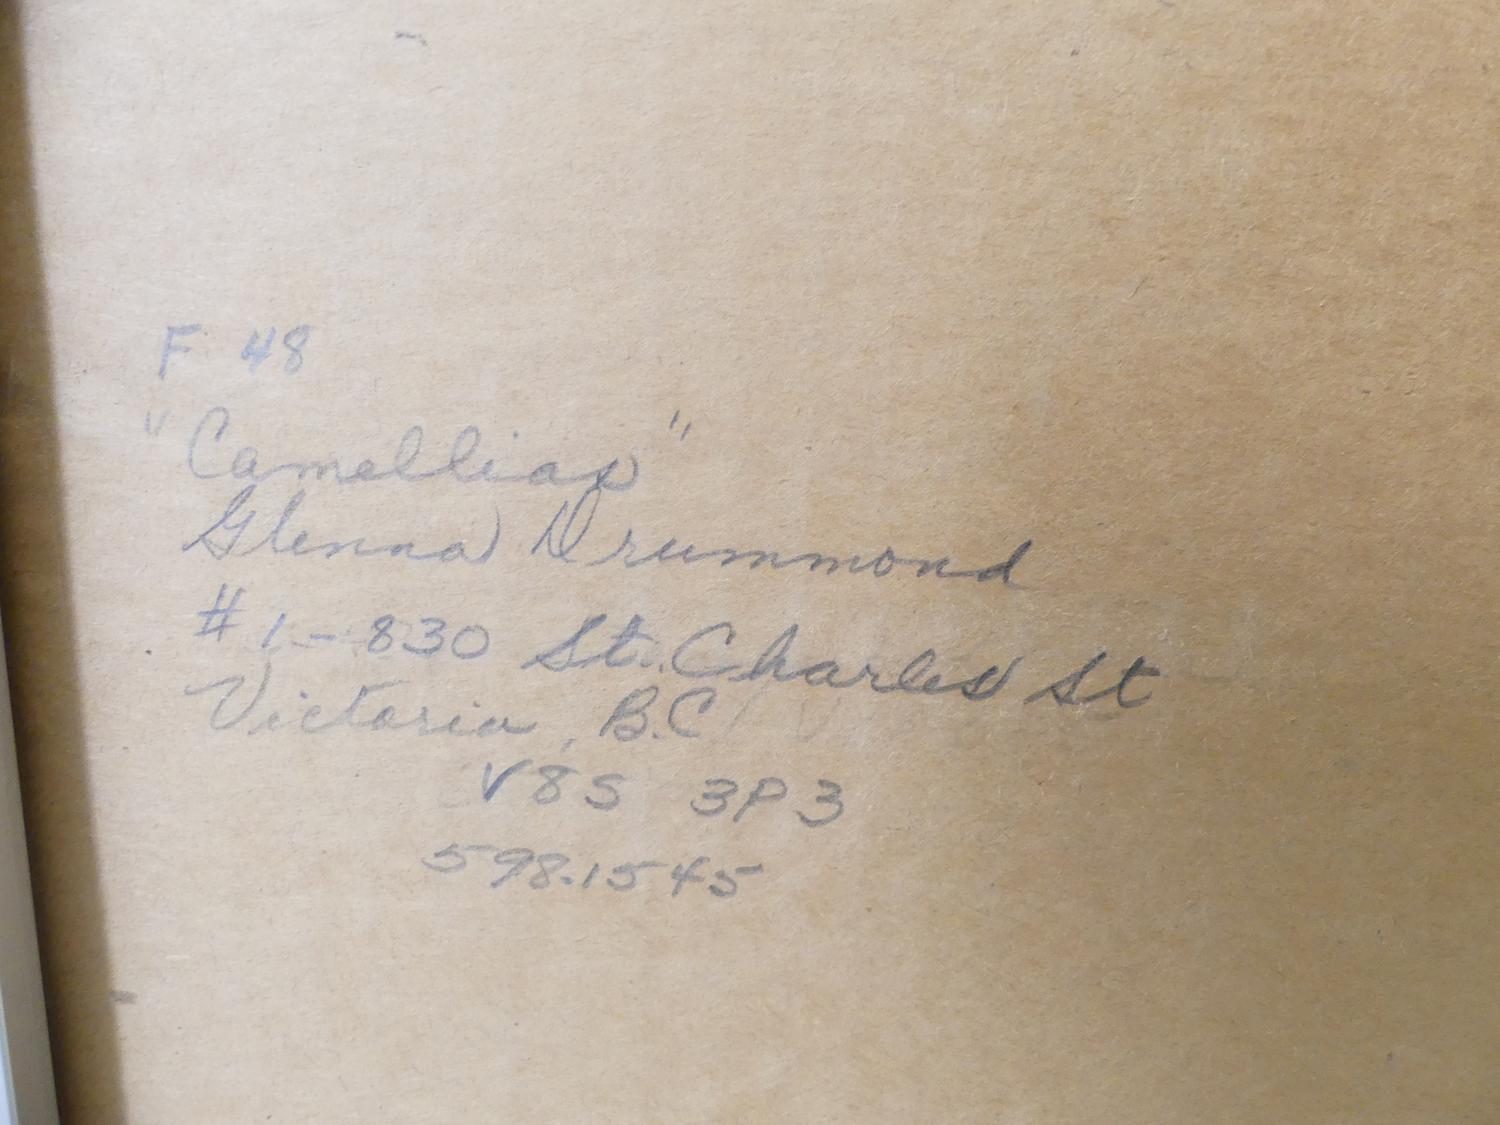 F 48
"Camellias"
Glenna Drummond
#1-830 St. Charles St
Victoria, B.C
V8S 3P3
598.1545